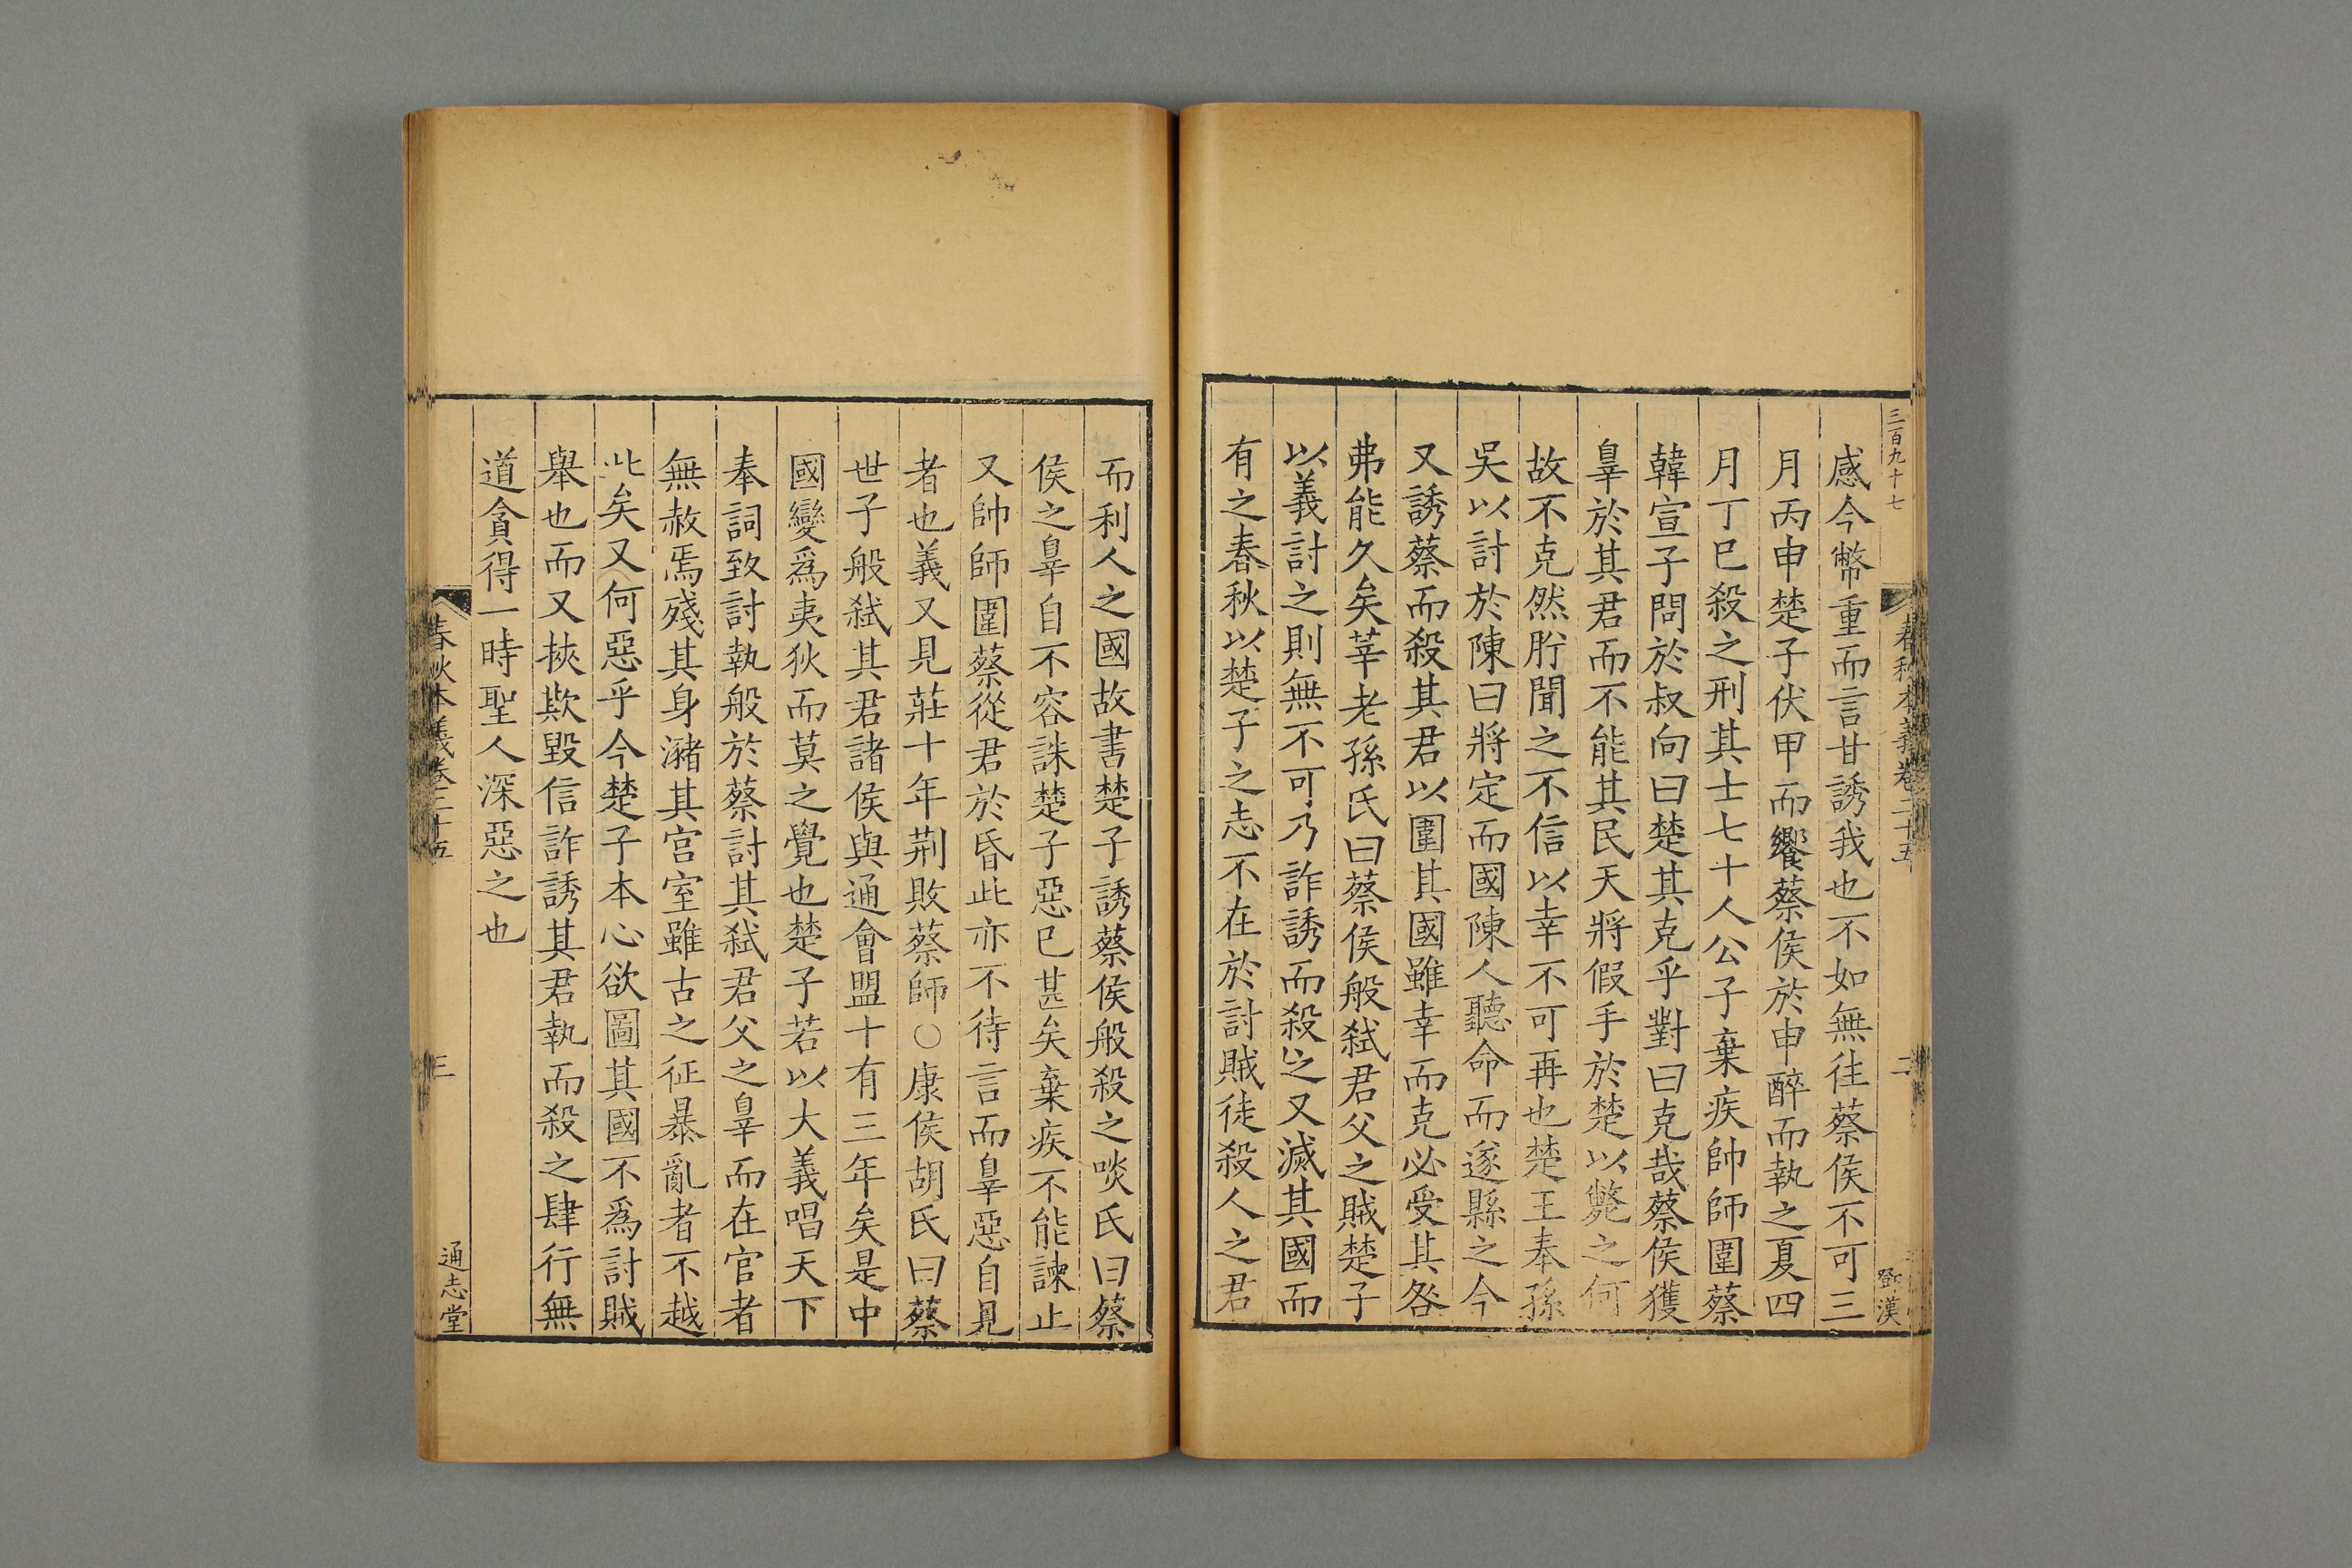 三百九十七
春秋本義卷二十五
二
鄧漢
感今幣重而言甘誘我也不如無往蔡侯不可三
月丙申楚子伏甲而饗蔡侯於申醉而執之夏四
月丁巳殺之刑其士七十人公子棄疾帥師圍蔡
韓宣子問於叔向曰楚其克乎對曰克哉蔡侯獲
辠於其君而不能其民天將假手於楚以斃之何
故不克然肹聞之不信以幸不可再也楚王奉孫
吳以討於陳曰將定而國陳人聽命而遂縣之今
又誘蔡而殺其君以圍其國雖幸而克必受其咎
弗能久矣莘老孫氏曰蔡侯般弑君父之賊楚子
以義討之則無不可乃詐誘而殺之又滅其國而
有之春秋以楚子之志不在於討賊徒殺人之君
而利人之國故書楚子誘蔡侯般殺之啖氏曰蔡
侯之辠自不容誅楚子惡已甚矣棄疾不能諫止
又帥師圍蔡從君於昏此亦不待言而辠惡自見
者也義又見莊十年荆敗蔡師○康侯胡氏曰蔡
世子般弑其君諸侯與通會盟十有三年矣是中
國變爲夷狄而莫之覺也楚子若以大義唱天下
奉詞致討執般於蔡討其弑君父之辠而在官者
無赦焉殘其身瀦其宮室雖古之征暴亂者不越
此矣又何惡乎今楚子本心欲圖其國不爲討賊
舉也而又挾欺毀信詐誘其君執而殺之肆行無
道貪得一時聖人深惡之也
春秋本義卷二十五
三
通志堂